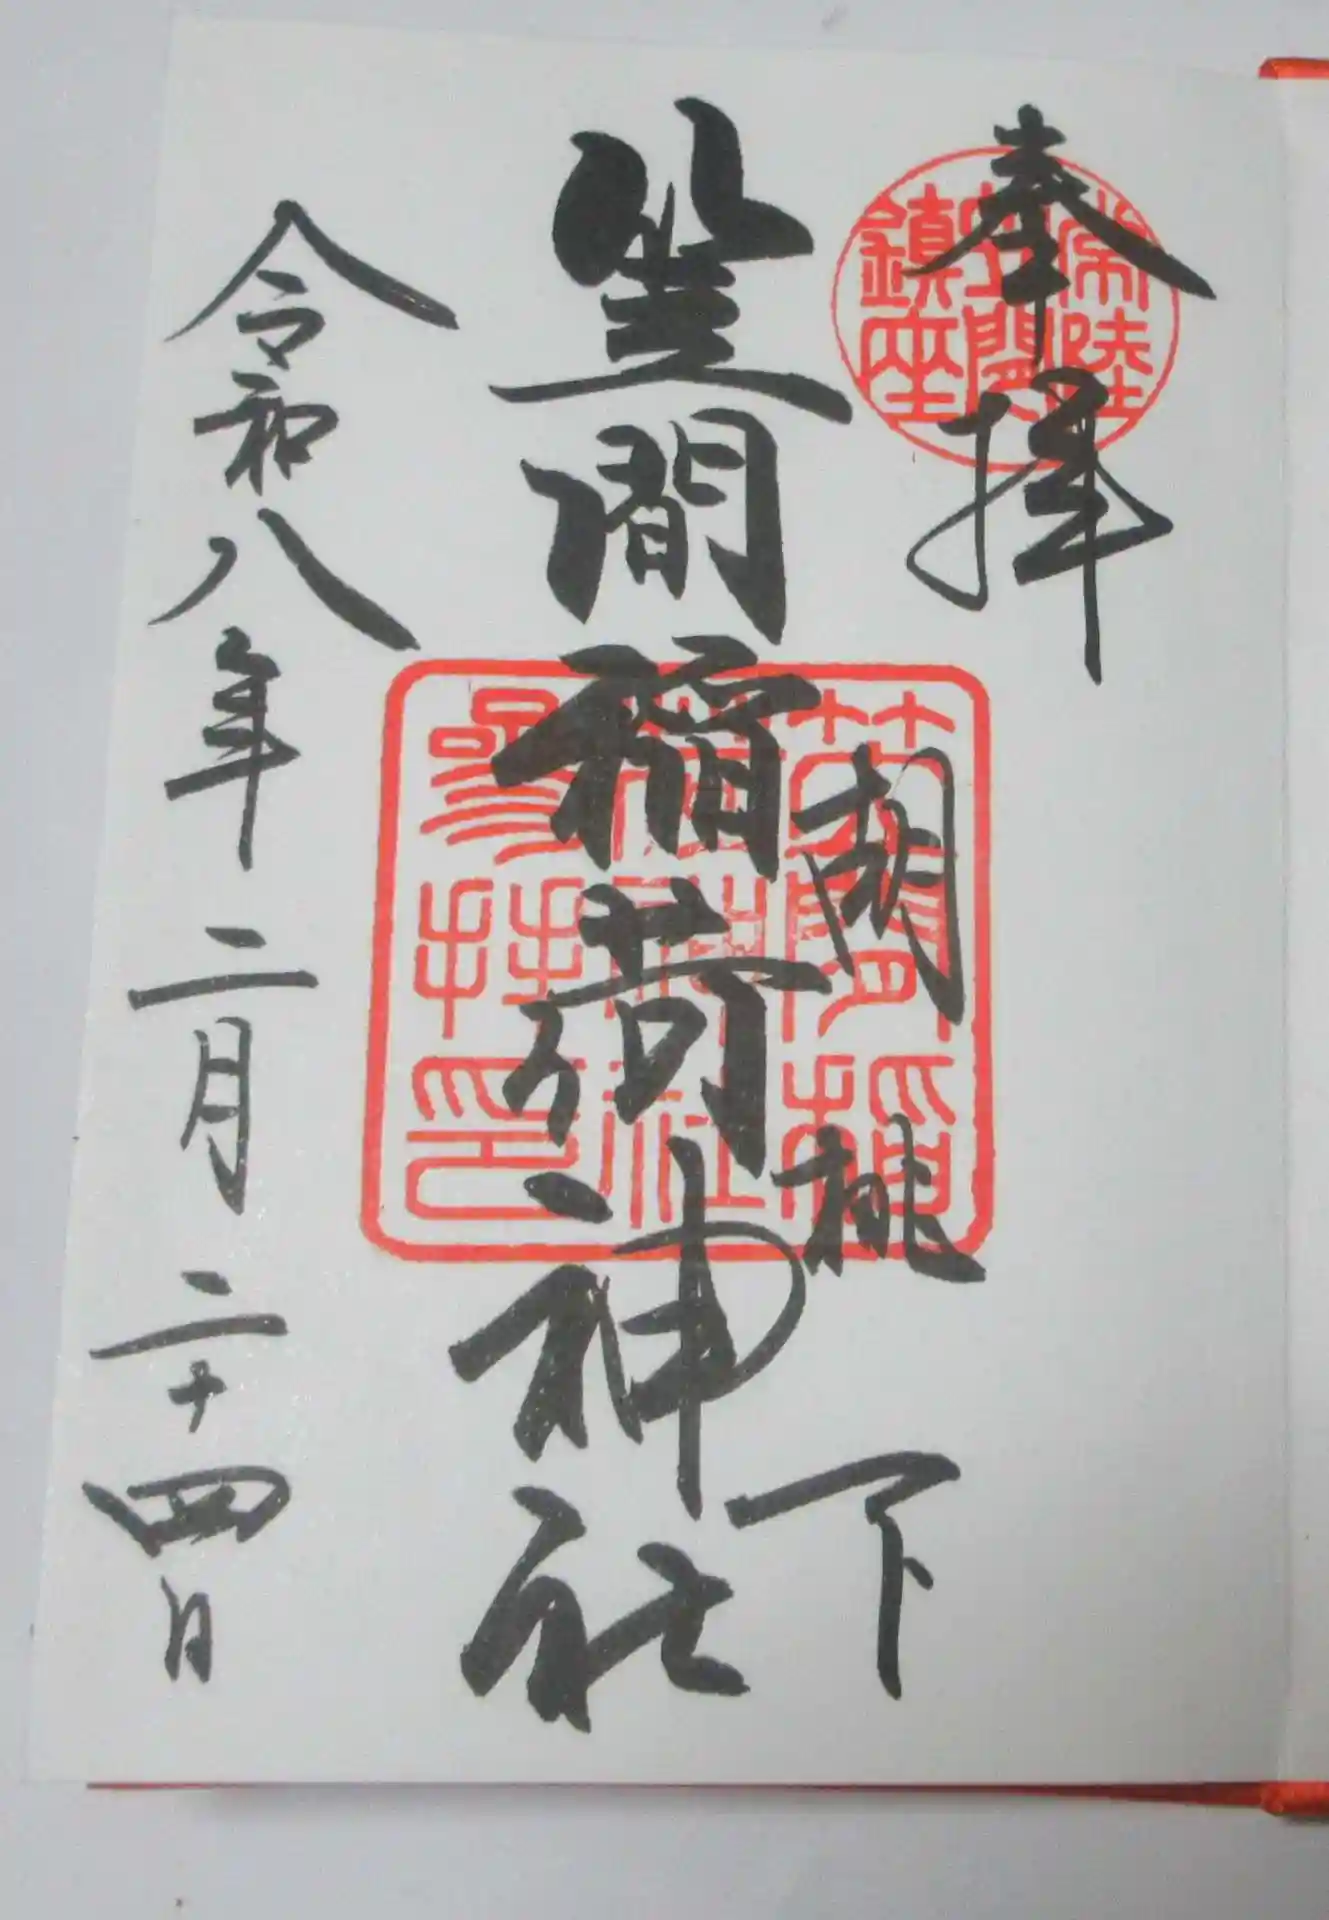 奉拝
常陸
笠間
鎮座
胡桃下
笠間稲荷神社
令和八年二月二十四日